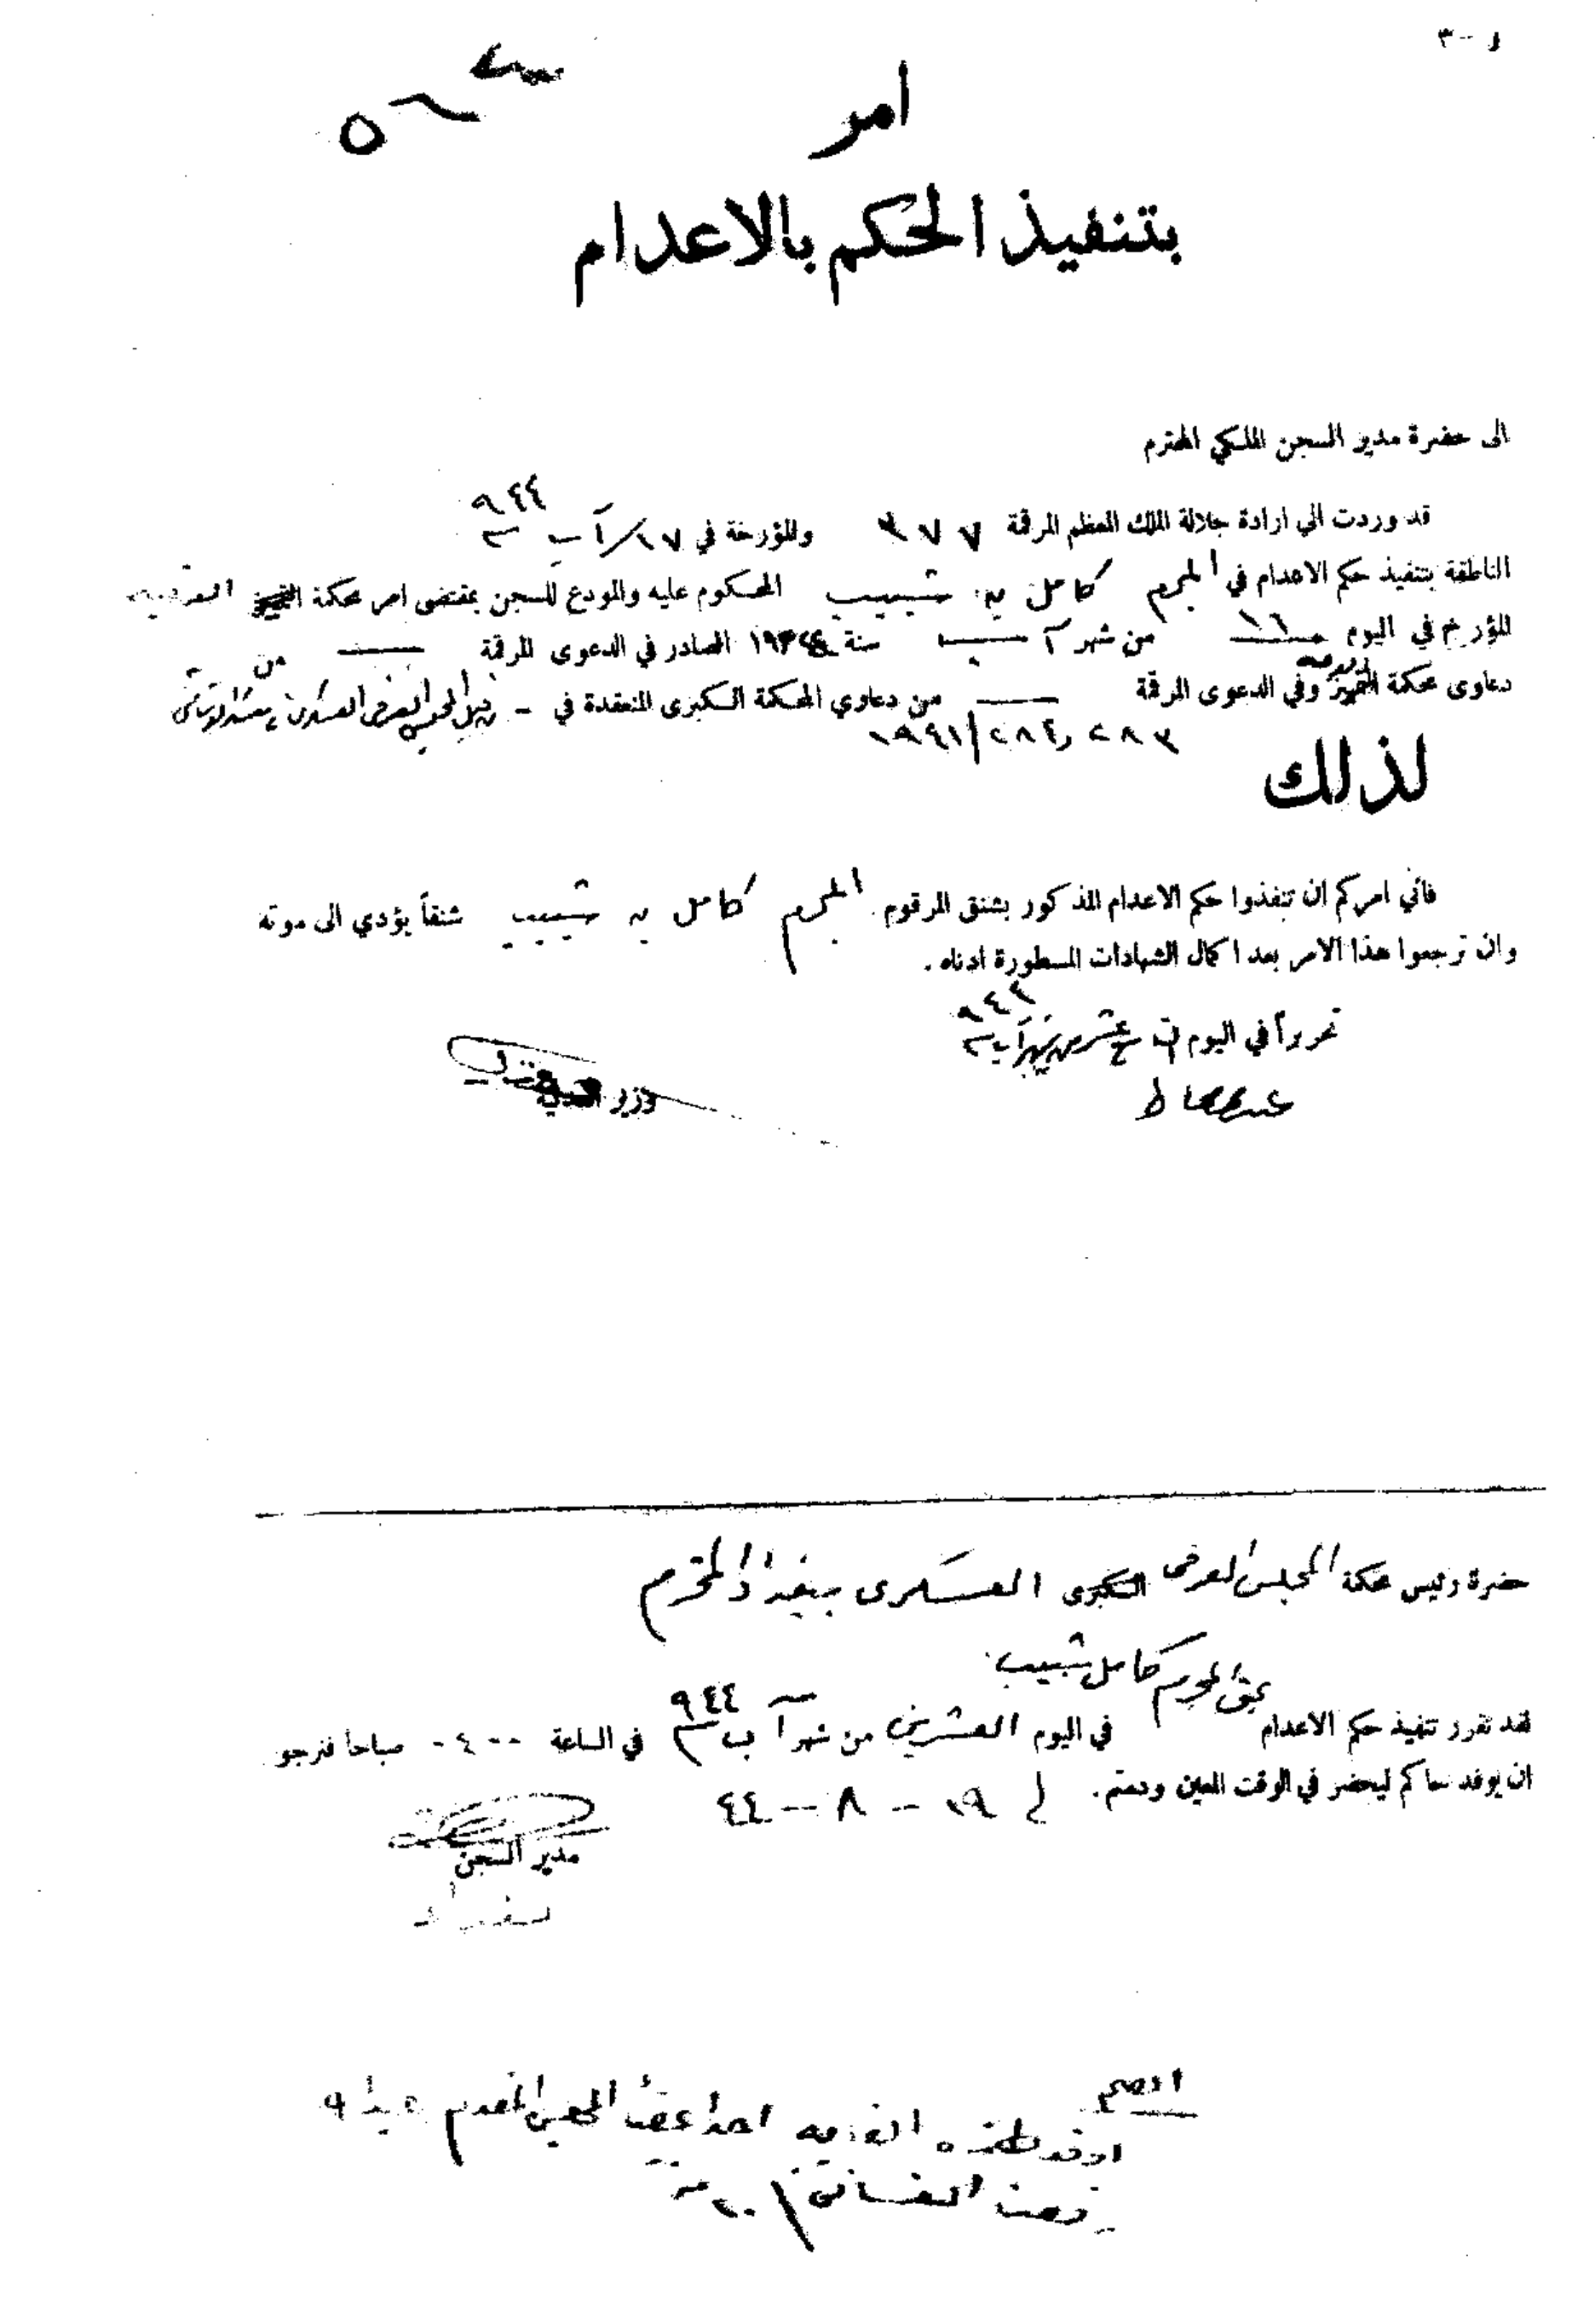 د - ٣
امر
بتنفيذ الحكم بالاعدام
الى حضرة مدير السجن الملكي المحترم
قد وردت الي ارادة جلالة الملك المعظم المرقمة ٣٧٧ والمؤرخة في ١٧/آب ٩٤٤
الناطقة بتنفيذ حكم الاعدام في المجرم كامل بن شبيب المحكوم عليه والمودع للسجن بمقتضى امر محكمة التمييز
المؤرخ في اليوم ١٦ من شهر آب سنة ١٩٣ الصادر في الدعوى المرقمة — من
دعاوى محكمة التمييز وفي الدعوى المرقمة — من دعاوي المحكمة الكبرى المنعقدة في - المجلس العرفي العسكري
٢٨٣ و ٢٨٤/١٩٤١
لذلك
فاني امركم ان تنفذوا حكم الاعدام المذكور بشنق المرقوم المجرم كامل بن شبيب شنقاً يؤدي الى موته
وان ترجعوا هذا الامر بعد اكمال الشهادات المسطورة ادناه .
تحريراً في اليوم عشر من شهر آب ٩٤٤
وزير
حضرة رئيس محكمة المجلس العرفي الكبرى العسكري ببغداد المحترم
بحق المجرم كامل شبيب
لقد تقرر تنفيذ حكم الاعدام في اليوم العشرين من شهر آب ٩٤٤ في الساعة ٤٠٠ صباحا فنرجو
ان يوفد حاكم ليحضر في الوقت المعين ودمتم . ١٩ - ٨ - ٤٤
مدير السجن
بغداد
احد اعضاء المجلس المقدم